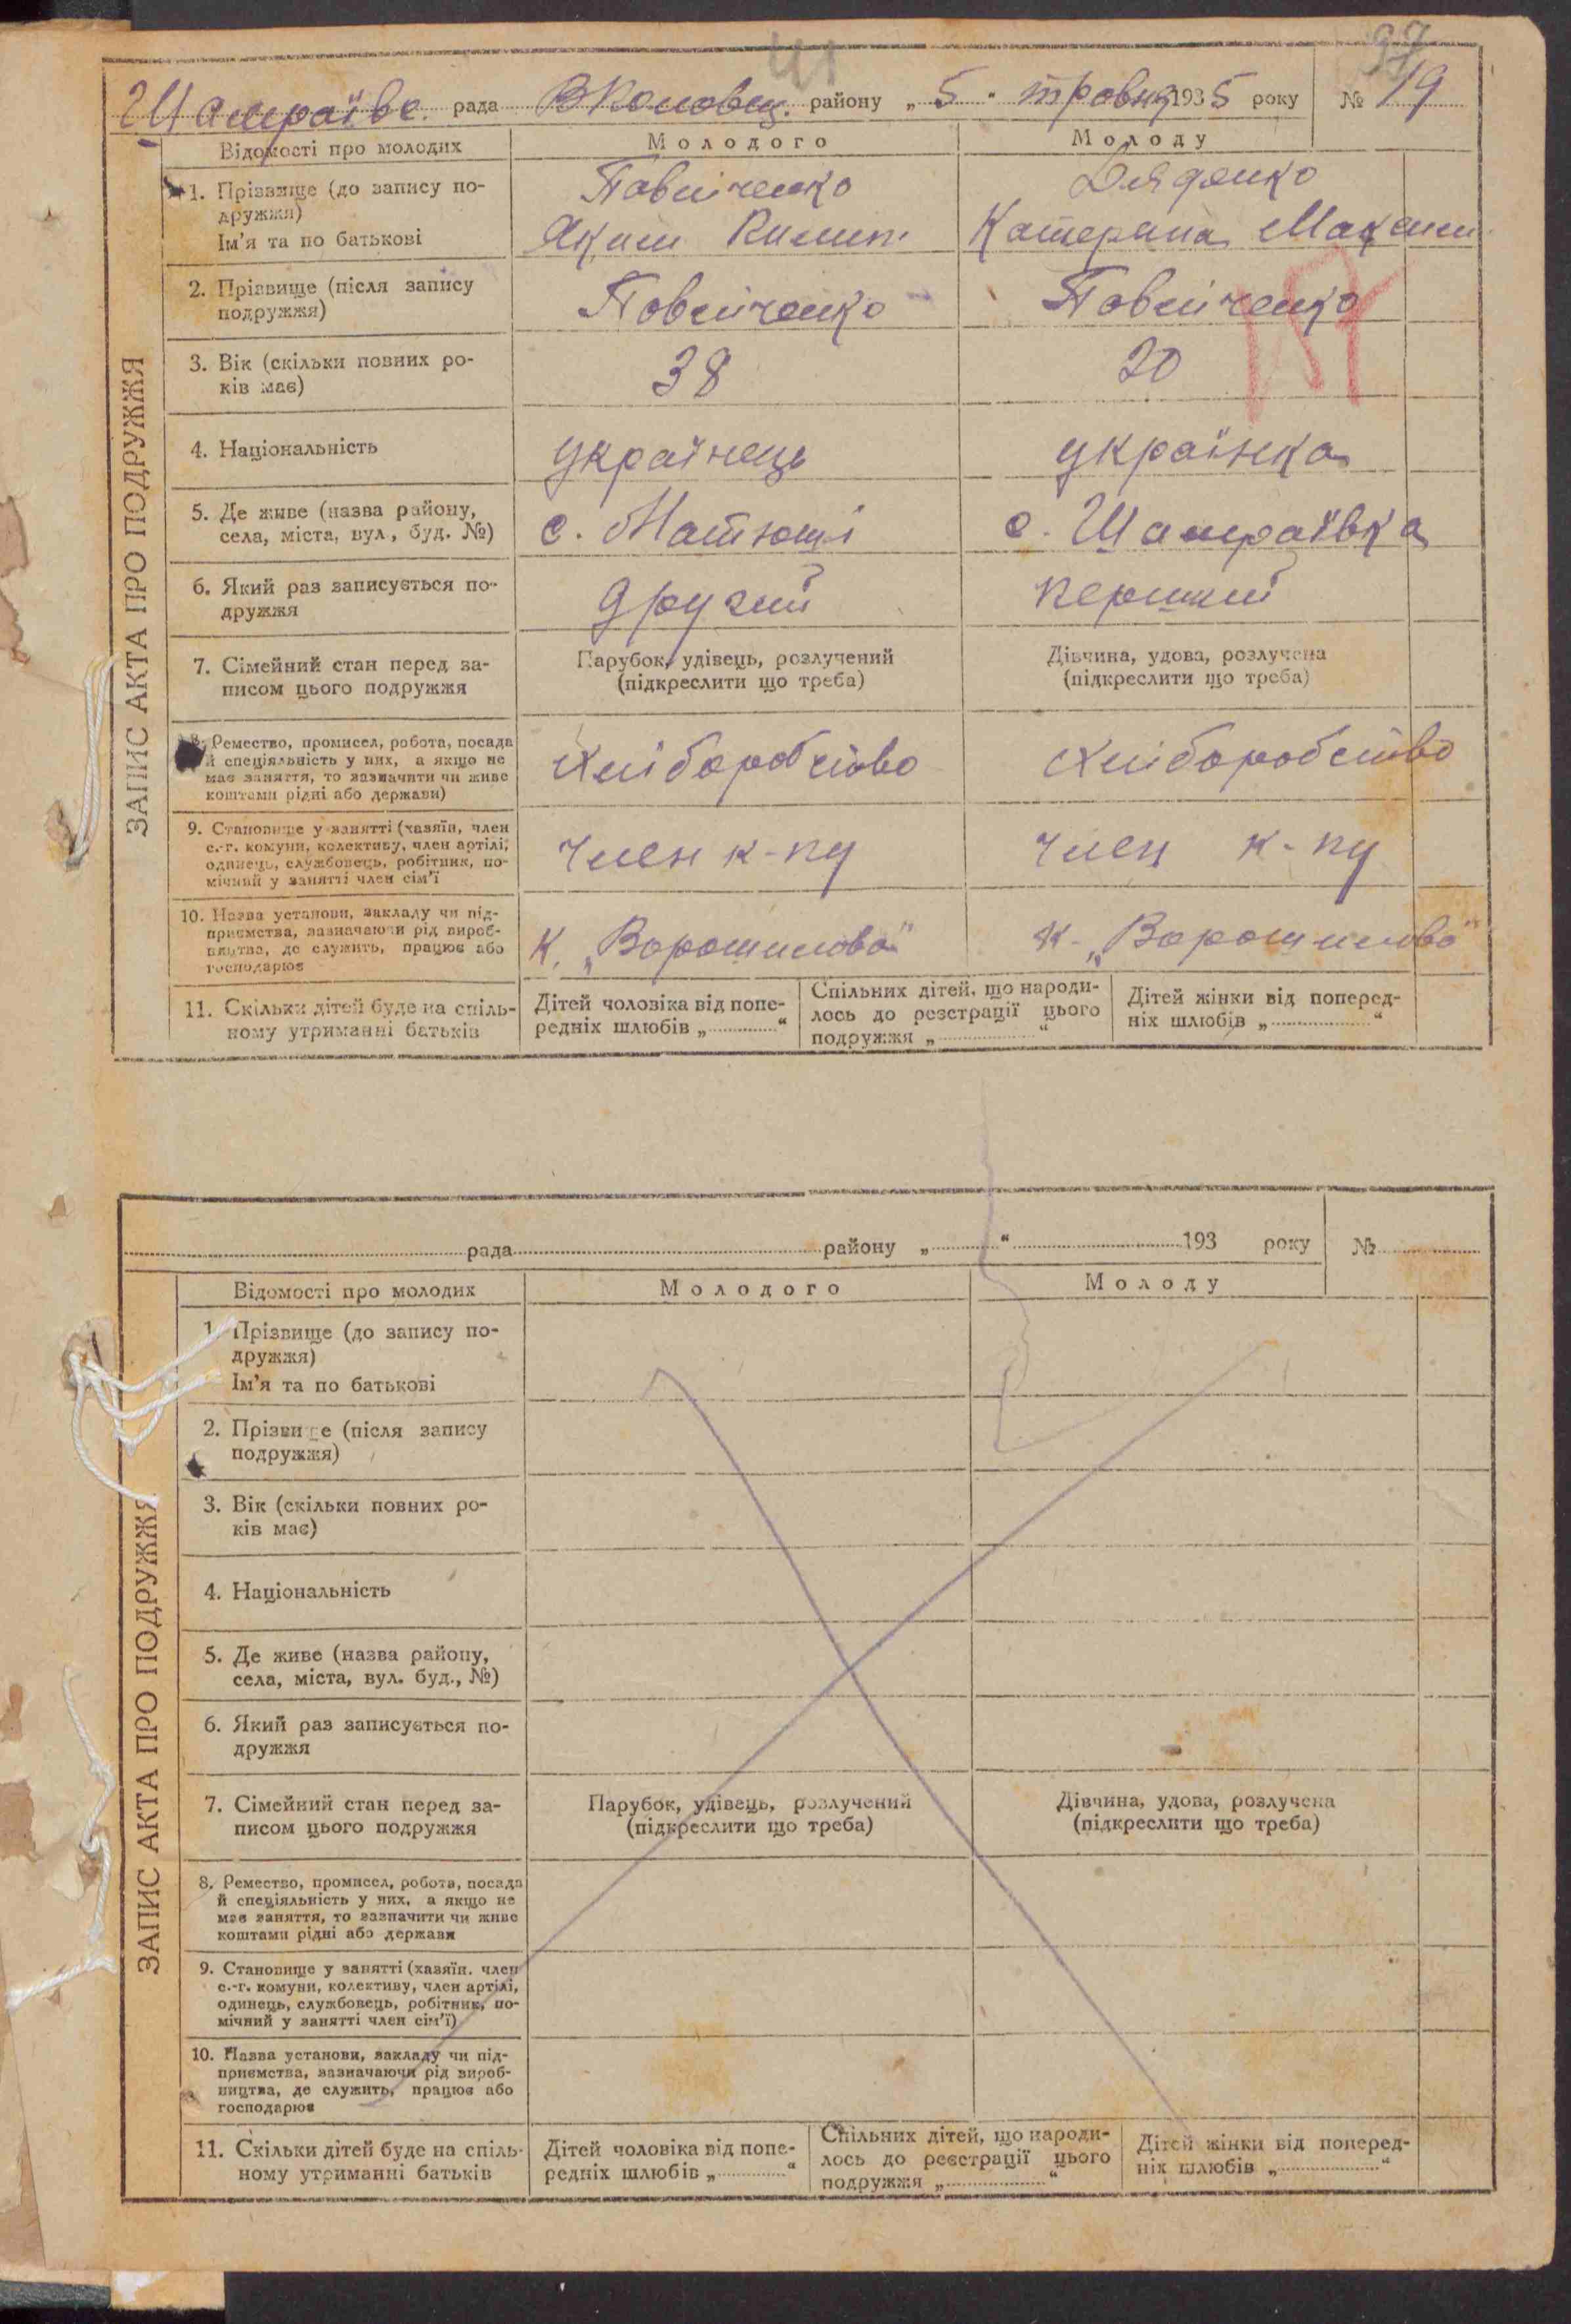 41
97
Шамраївс. рада В Половец. району „5“ травня 1935 року № 19
ЗАПИС АКТА ПРО ПОДРУЖЖЯ
Відомості про молодих
Молодого
Молоду
1. Прізвище (до запису по-
дружжя)
Ім’я та по батькові
Павліченко
Яким Филип.
Дяденко
Катерина Максим.
2. Прізвище (після запису
подружжя)
Павліченко
Павліченко
3. Вік (скільки повних ро-
ків має)
38
20
4. Національність
українець
українка
5. Де живе (назва району,
села, міста, вул., буд. №)
с. Матюші
с. Шамраївка
6. Який раз записується по-
дружжя
другий
перший
7. Сімейний стан перед за-
писом цього подружжя
Парубок, удівець, розлучений
(підкреслити що треба)
Дівчина, удова, розлучена
(підкреслити що треба)
8. Ремество, промисел, робота, посада
й спеціяльність у них, а якщо не
має заняття, то зазначити чи живе
коштами рідні або держави)
хліборобство
хліборобство
9. Становище у занятті (хазяїн, член
с.-г. комуни, колективу, член артілі,
одинець, службовець, робітник, по-
мічний у занятті член сім’ї
член к-пу
член к-пу
10. Назва установи, закладу чи під-
приємства, зазначаючи рід вироб-
ництва, де служить, працює або
господарює
к. „Ворошилова“
к. „Ворошилова“
11. Скільки дітей буде на спіль-
ному утриманні батьків
Дітей чоловіка від попе-
редніх шлюбів „ “
Спільних дітей, що народи-
лось до реєстрації цього
подружжя „ “
Дітей жінки від поперед-
ніх шлюбів „ “
рада району „ “ 193 року №
ЗАПИС АКТА ПРО ПОДРУЖЖЯ
Відомості про молодих
Молодого
Молоду
1. Прізвище (до запису по-
дружжя)
Ім’я та по батькові
2. Прізвище (після запису
подружжя)
3. Вік (скільки повних ро-
ків має)
4. Національність
5. Де живе (назва району,
села, міста, вул. буд., №)
6. Який раз записується по-
дружжя
7. Сімейний стан перед за-
писом цього подружжя
Парубок, удівець, розлучений
(підкреслити що треба)
Дівчина, удова, розлучена
(підкреслити що треба)
8. Ремество, промисел, робота, посада
й спеціяльність у них, а якщо не
має заняття, то зазначити чи живе
коштами рідні або держави
9. Становище у занятті (хазяїн. член
с.-г. комуни, колективу, член артілі,
одинець, службовець, робітник, по-
мічний у занятті член сім’ї)
10. Назва установи, закладу чи під-
приємства, зазначаючи рід вироб-
ництва, де служить, працює або
господарює
11. Скільки дітей буде на спіль-
ному утриманні батьків
Дітей чоловіка від попе-
редніх шлюбів „ “
Спільних дітей, що народи-
лось до реєстрації цього
подружжя „ “
Дітей жінки від поперед-
ніх шлюбів „ “